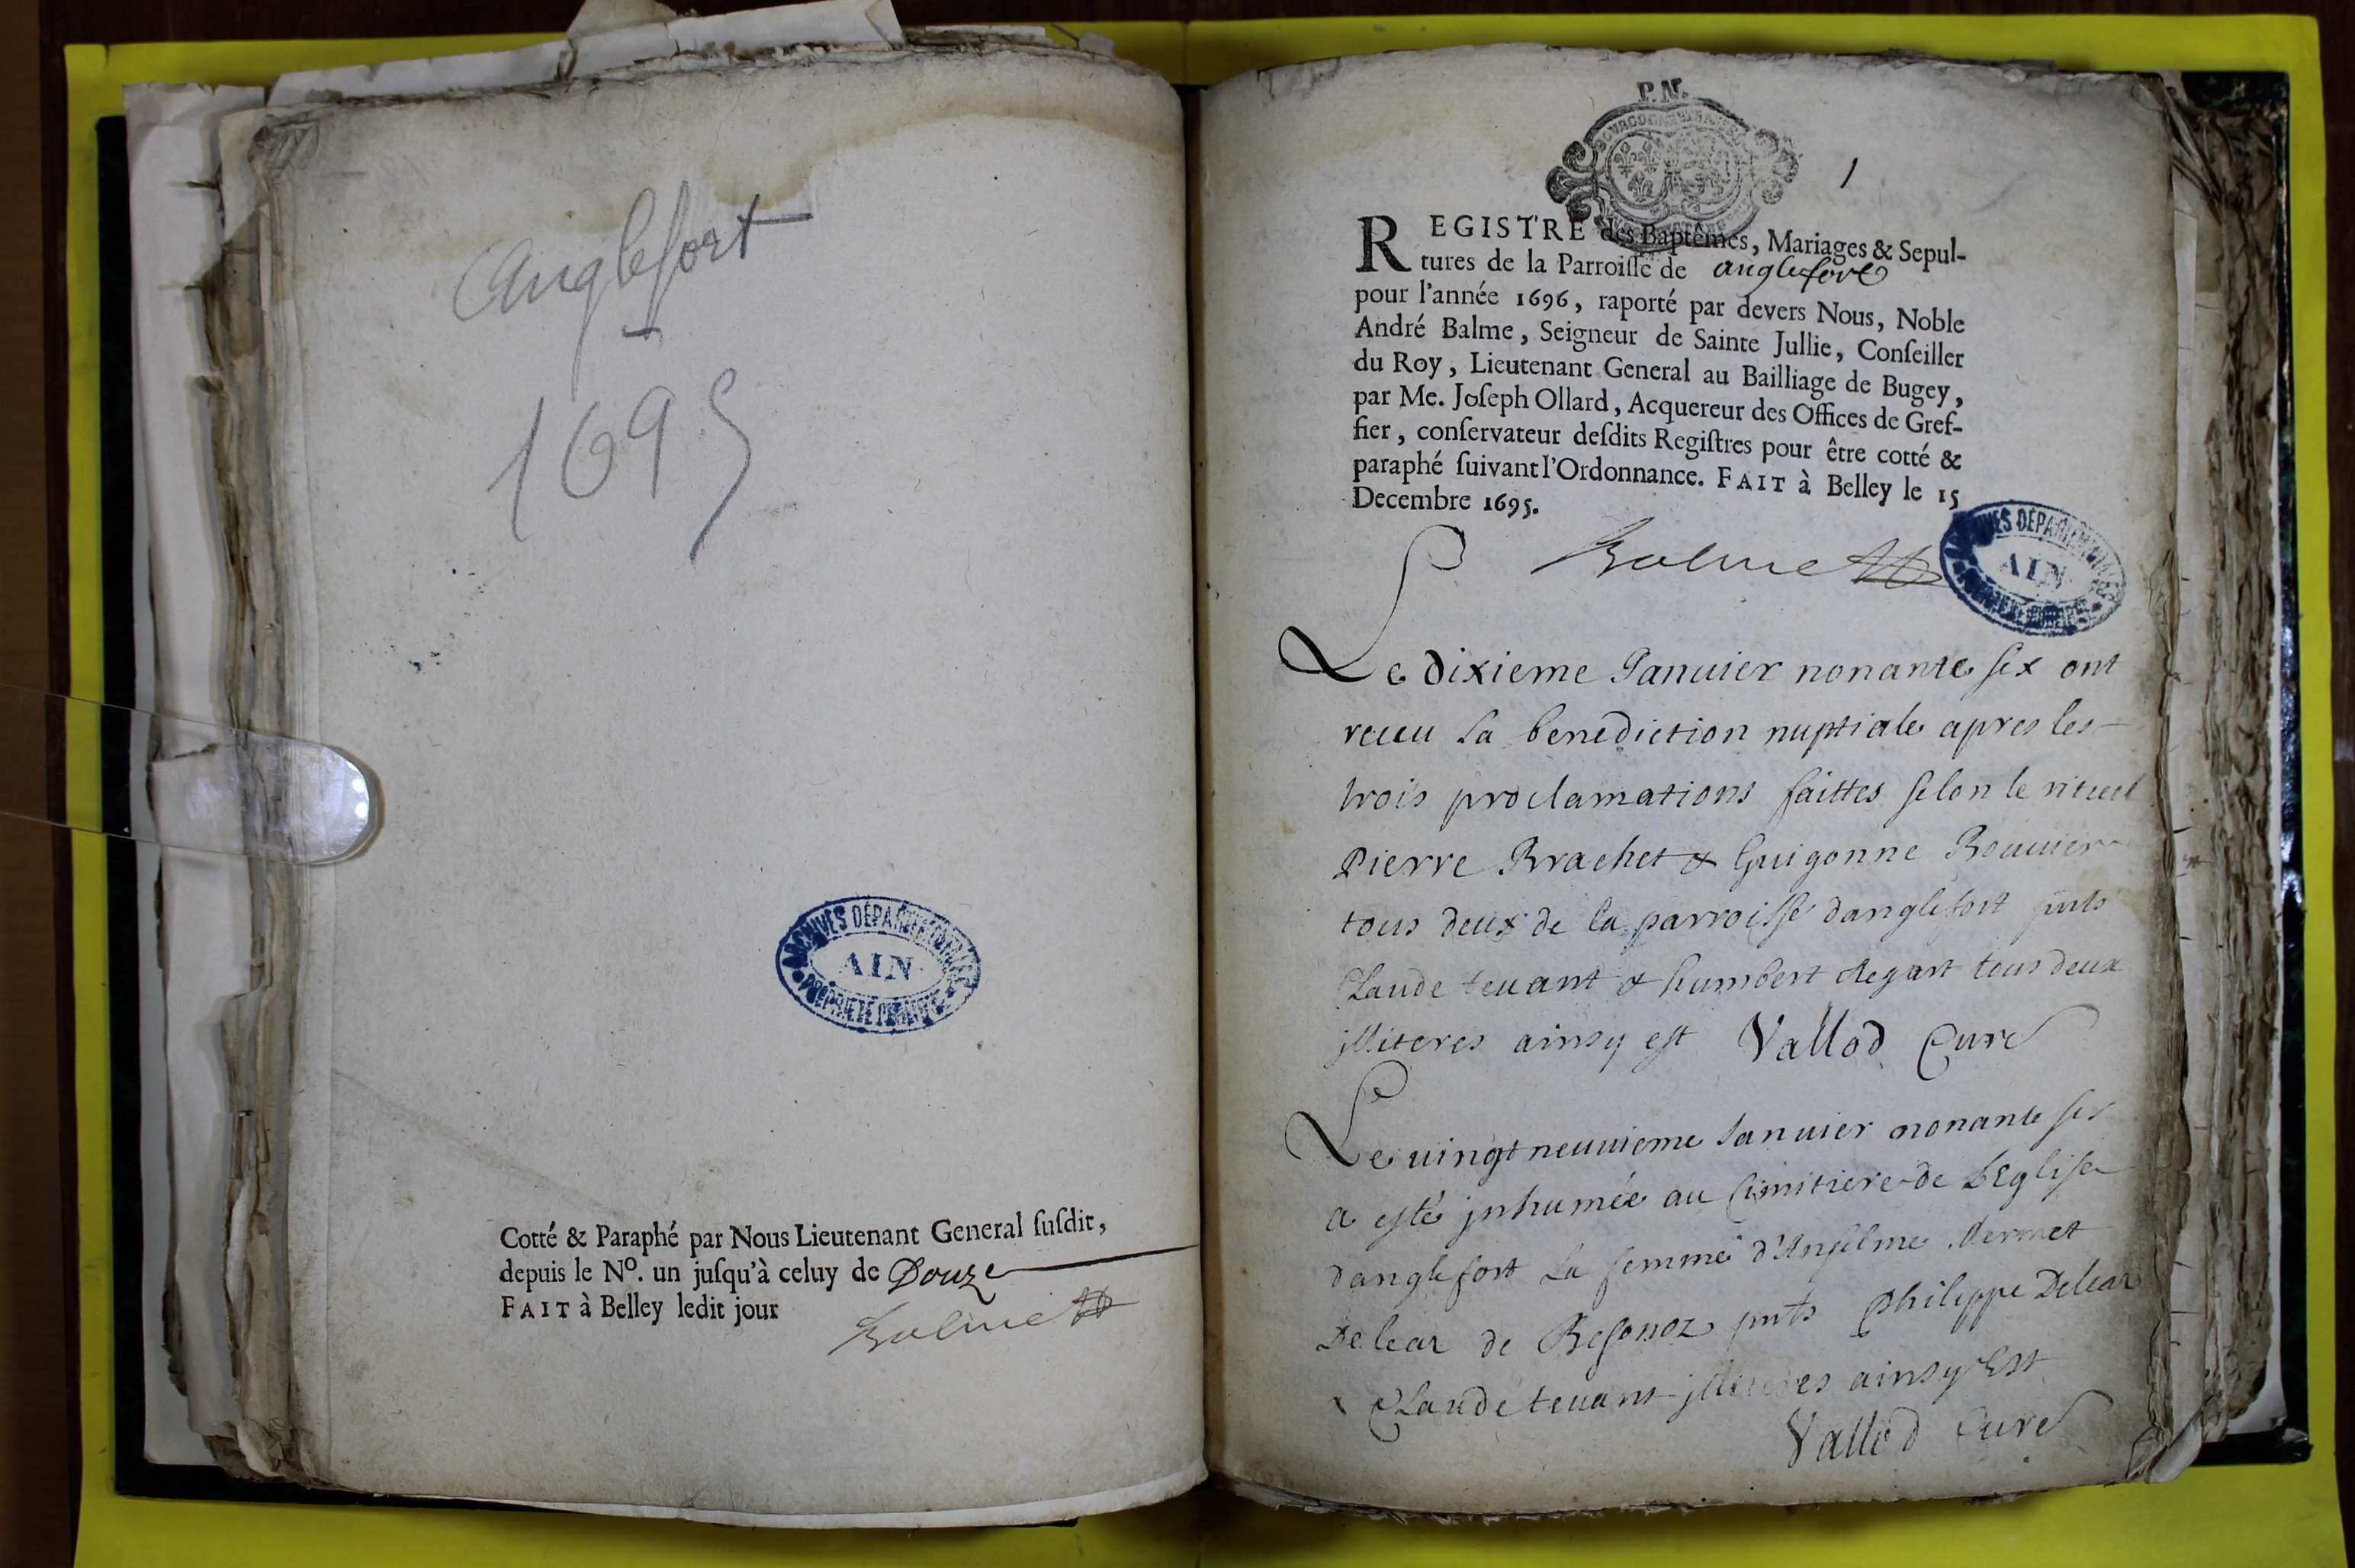 Anglefort
1695
ARCHIVES DÉPARTEMENTALES
AIN
PROPRIÉTÉ PUBLIQUE
Cotté & Paraphé par Nous Lieutenant General ſuſdit,
depuis le Nº. un juſqu'à celuy de Douze
FAIT à Belley ledit jour
Balme
P.N.
1
REGISTRE des Baptêmes, Mariages & Sepul-
tures de la Parroiſſe de anglefort
pour l'année 1696, raporté par devers Nous, Noble
André Balme, Seigneur de Sainte Jullie, Conſeiller
du Roy, Lieutenant General au Bailliage de Bugey,
par Me. Joſeph Ollard, Acquereur des Offices de Gref-
fier, conſervateur deſdits Regiſtres pour être cotté &
paraphé ſuivant l'Ordonnance. FAIT à Belley le 15
Decembre 1695.
Balme
ARCHIVES DÉPARTEMENTALES
AIN
Le dixieme Januier nonante ſix ont
receu la benediction nuptiale apres les
trois proclamations faittes ſelon le rituel
Pierre Brachet & Guigonne Bouuier
tous deux de la parroiſſe danglefort pnts
Claude teuant & humbert Regart tous deux
jlliteres ainsy eſt Vallod Curé
Le uingt neuuieme Januier nonante ſix
a eſté jnhumée au Cimitiere de LEgliſe
danglefort La femme d'Anſelme Mermet
Delear de Reſonoz pnts Philippe Delear
& Claude teuant jlliteres ainsy Eſt
Vallod Curé